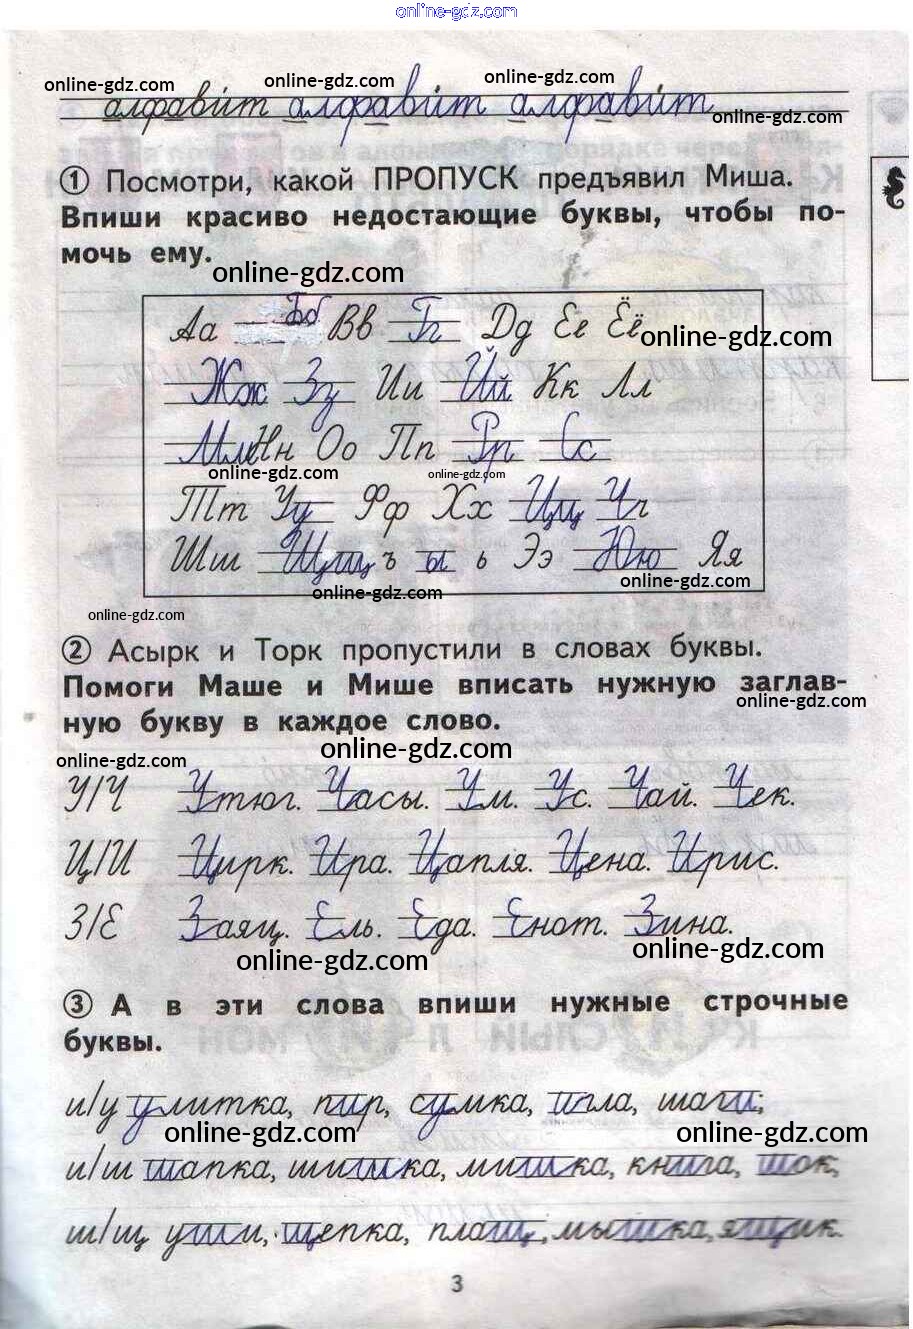 online-gdz.com
online-gdz.com online-gdz.com online-gdz.com
алфавит алфавит алфавит
online-gdz.com
① Посмотри, какой ПРОПУСК предъявил Миша.
Впиши красиво недостающие буквы, чтобы по-
мочь ему.
online-gdz.com
Аа Бб Вв Гг Дд Ее Ёё
online-gdz.com
Жж Зз Ии Йй Кк Лл
Мм Нн Оо Пп Рр Сс
online-gdz.com online-gdz.com
Тт Уу Фф Хх Цц Чч
Шш Щщ ъ ы ь Ээ Юю Яя
online-gdz.com online-gdz.com
online-gdz.com
② Асырк и Торк пропустили в словах буквы.
Помоги Маше и Мише вписать нужную заглав-
online-gdz.com
ную букву в каждое слово.
online-gdz.com online-gdz.com
У/Ч Утюг. Часы. Ум. Ус. Чай. Чек.
Ц/И Цирк. Ира. Цапля. Цена. Ирис.
З/Е Заяц. Ель. Еда. Енот. Зина.
online-gdz.com online-gdz.com
③ А в эти слова впиши нужные строчные
буквы.
и/у улитка, пир, сумка, игла, шаги,
online-gdz.com online-gdz.com
и/ш шапка, шишка, мишка, книга, шок,
ш/щ уши, щепка, плащ, мышка, ящик.
3